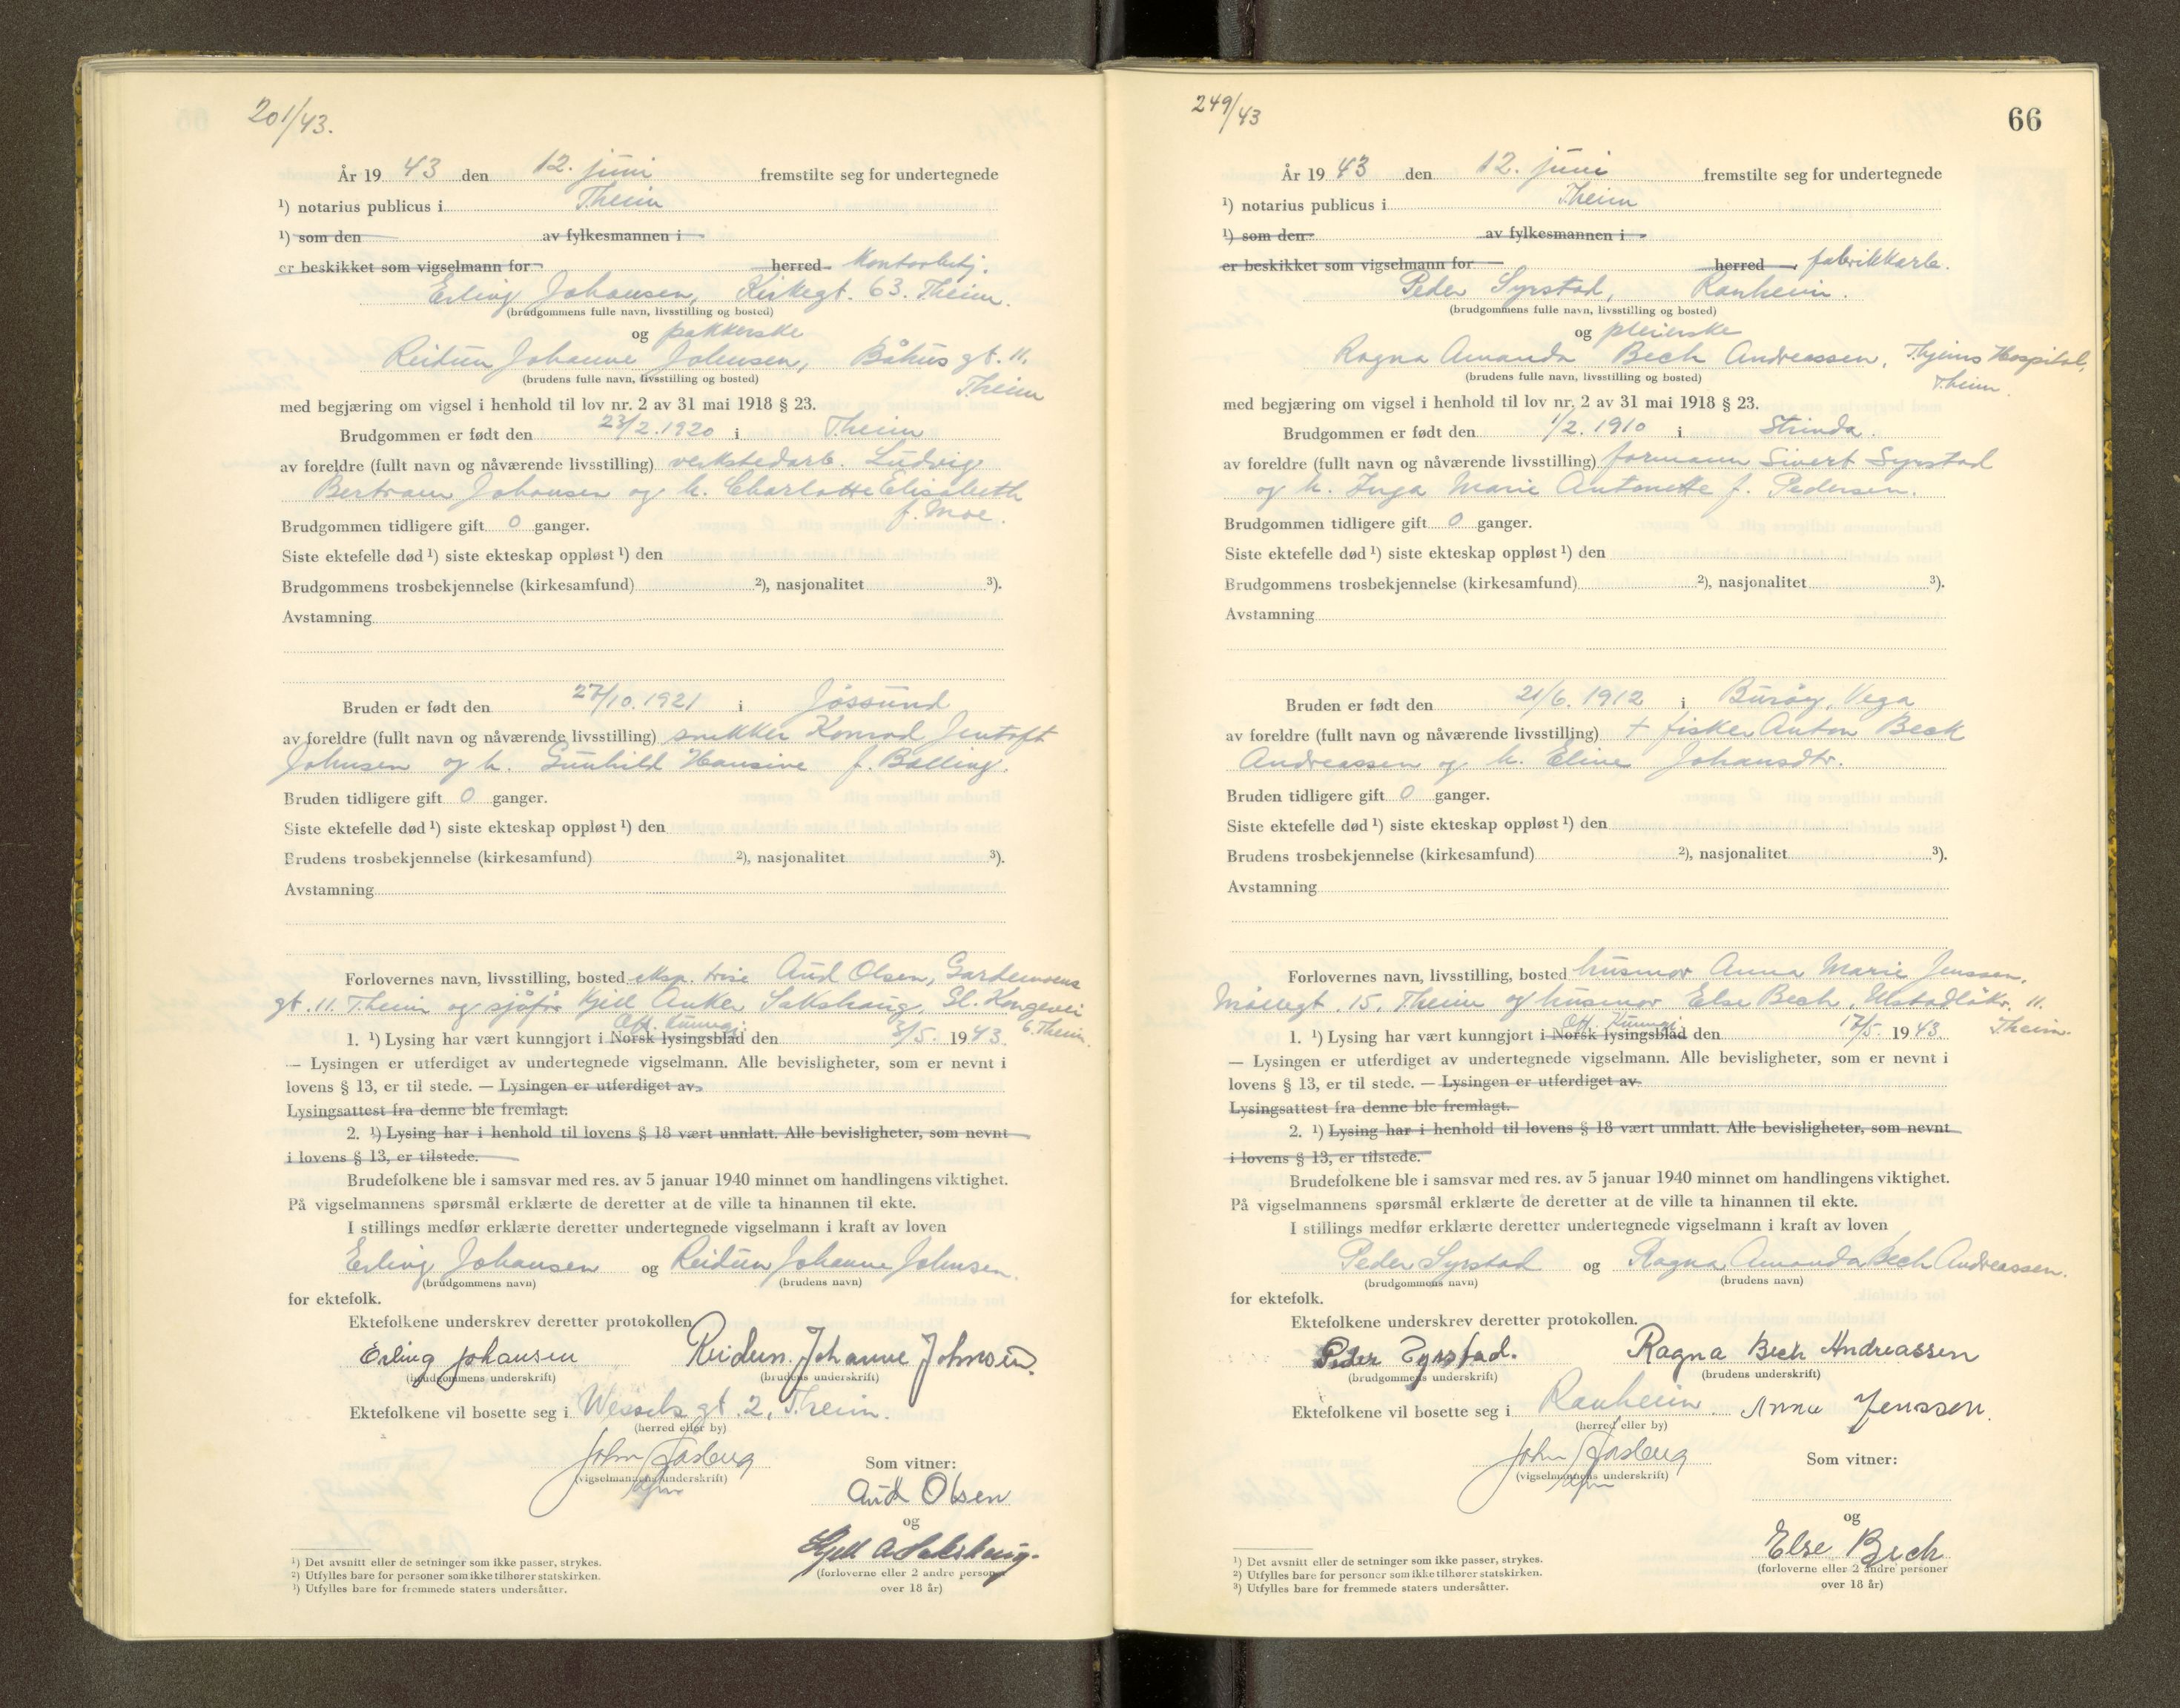 201/43.
År 19 43 den 12. juni fremstilte seg for undertegnede
¹) notarius publicus i Theim
¹) som den av fylkesmannen i
er beskikket som vigselmann for herred kontorbetj.
Erling Johansen, Kirkegt. 63. Theim.
(brudgommens fulle navn, livsstilling og bosted)
og pakkerske
Reidun Johanne Johnsen, Båhus gt. 11.
(brudens fulle navn, livsstilling og bosted) Theim
med begjæring om vigsel i henhold til lov nr. 2 av 31 mai 1918 § 23.
Brudgommen er født den 23/2. 1920 i Theim
av foreldre (fullt navn og nåværende livsstilling) verkstedarb. Ludvig
Bertram Johansen og h. Charlotte Elisabeth
f. Moe.
Brudgommen tidligere gift 0 ganger.
Siste ektefelle død ¹) siste ekteskap oppløst ¹) den
Brudgommens trosbekjennelse (kirkesamfund) ²), nasjonalitet ³).
Avstamning
Bruden er født den 27/10. 1921 i Jøssund
av foreldre (fullt navn og nåværende livsstilling) snekker Konrad Jentoft
Johnsen og h. Gunhild Hansine f. Balling.
Bruden tidligere gift 0 ganger.
Siste ektefelle død ¹) siste ekteskap oppløst ¹) den
Brudens trosbekjennelse (kirkesamfund) ²), nasjonalitet ³).
Avstamning
Forlovernes navn, livsstilling, bosted eksp. trise Aud Olsen, Gardemoens
gt. 11. Theim og sjåfør Kjell Anker Sakshaug, Gl. Kongevei
6. Theim.
Off. Kunngj.
1. ¹) Lysing har vært kunngjort i Norsk lysingsblad den 3/5. 1943.
— Lysingen er utferdiget av undertegnede vigselmann. Alle bevisligheter, som er nevnt i
lovens § 13, er til stede. — Lysingen er utferdiget av
Lysingsattest fra denne ble fremlagt.
2. ¹) Lysing har i henhold til lovens § 18 vært unnlatt. Alle bevisligheter, som nevnt
i lovens § 13, er tilstede.
Brudefolkene ble i samsvar med res. av 5 januar 1940 minnet om handlingens viktighet.
På vigselmannens spørsmål erklærte de deretter at de ville ta hinannen til ekte.
I stillings medfør erklærte deretter undertegnede vigselmann i kraft av loven
Erling Johansen og Reidun Johanne Johnsen.
(brudgommens navn) (brudens navn)
for ektefolk.
Ektefolkene underskrev deretter protokollen
Erling Johansen Reidun Johanne Johnsen.
(brudgommens underskrift) (brudens underskrift)
Ektefolkene vil bosette seg i Wessels gt. 2, Theim.
(herred eller by)
Som vitner:
(vigselmannens underskrift)
Aud Olsen
og
Kjell A Sakshaug.
(forloverne eller 2 andre personer
over 18 år)
¹) Det avsnitt eller de setninger som ikke passer, strykes.
²) Utfylles bare for personer som ikke tilhører statskirken.
³) Utfylles bare for fremmede staters undersåtter.
249/43
66
År 19 43 den 12. juni fremstilte seg for undertegnede
¹) notarius publicus i Theim
¹) som den av fylkesmannen i
er beskikket som vigselmann for herred fabrikkarb.
Peder Syrstad, Ranheim.
(brudgommens fulle navn, livsstilling og bosted)
og pleierske
Ragna Amanda Bech Andreassen, Thjems Hospital,
(brudens fulle navn, livsstilling og bosted) Theim.
med begjæring om vigsel i henhold til lov nr. 2 av 31 mai 1918 § 23.
Brudgommen er født den 1/2. 1910 i Strinda.
av foreldre (fullt navn og nåværende livsstilling) formann Sivert Syrstad
og h. Inga Marie Antonette f. Pedersen.
Brudgommen tidligere gift 0 ganger.
Siste ektefelle død ¹) siste ekteskap oppløst ¹) den
Brudgommens trosbekjennelse (kirkesamfund) ²), nasjonalitet ³).
Avstamning
Bruden er født den 21/6. 1912 i Burøy, Vega
av foreldre (fullt navn og nåværende livsstilling) + fisker Anton Beck
Andreassen og h. Eline Johansdtr.
Bruden tidligere gift 0 ganger.
Siste ektefelle død ¹) siste ekteskap oppløst ¹) den
Brudens trosbekjennelse (kirkesamfund) ²), nasjonalitet ³).
Avstamning
Forlovernes navn, livsstilling, bosted husmor Anna Marie Jenssen,
Møllegt. 15. Theim og husmor Else Bech, Ulstadløkv. 11.
Theim.
Off. Kunngj
1. ¹) Lysing har vært kunngjort i Norsk lysingsblad den 17/5. 1943.
— Lysingen er utferdiget av undertegnede vigselmann. Alle bevisligheter, som er nevnt i
lovens § 13, er til stede. — Lysingen er utferdiget av
Lysingsattest fra denne ble fremlagt.
2. ¹) Lysing har i henhold til lovens § 18 vært unnlatt. Alle bevisligheter, som nevnt
i lovens § 13, er tilstede.
Brudefolkene ble i samsvar med res. av 5 januar 1940 minnet om handlingens viktighet.
På vigselmannens spørsmål erklærte de deretter at de ville ta hinannen til ekte.
I stillings medfør erklærte deretter undertegnede vigselmann i kraft av loven
Peder Syrstad og Ragna Amanda Bech Andreassen.
(brudgommens navn) (brudens navn)
for ektefolk.
Ektefolkene underskrev deretter protokollen.
Peder Syrstad. Ragna Bech Andreassen
(brudgommens underskrift) (brudens underskrift)
Ektefolkene vil bosette seg i Ranheim. Anna Jenssen.
(herred eller by)
Som vitner:
(vigselmannens underskrift)
og
Else Bech
(forloverne eller 2 andre personer
over 18 år)
¹) Det avsnitt eller de setninger som ikke passer, strykes.
²) Utfylles bare for personer som ikke tilhører statskirken.
³) Utfylles bare for fremmede staters undersåtter.